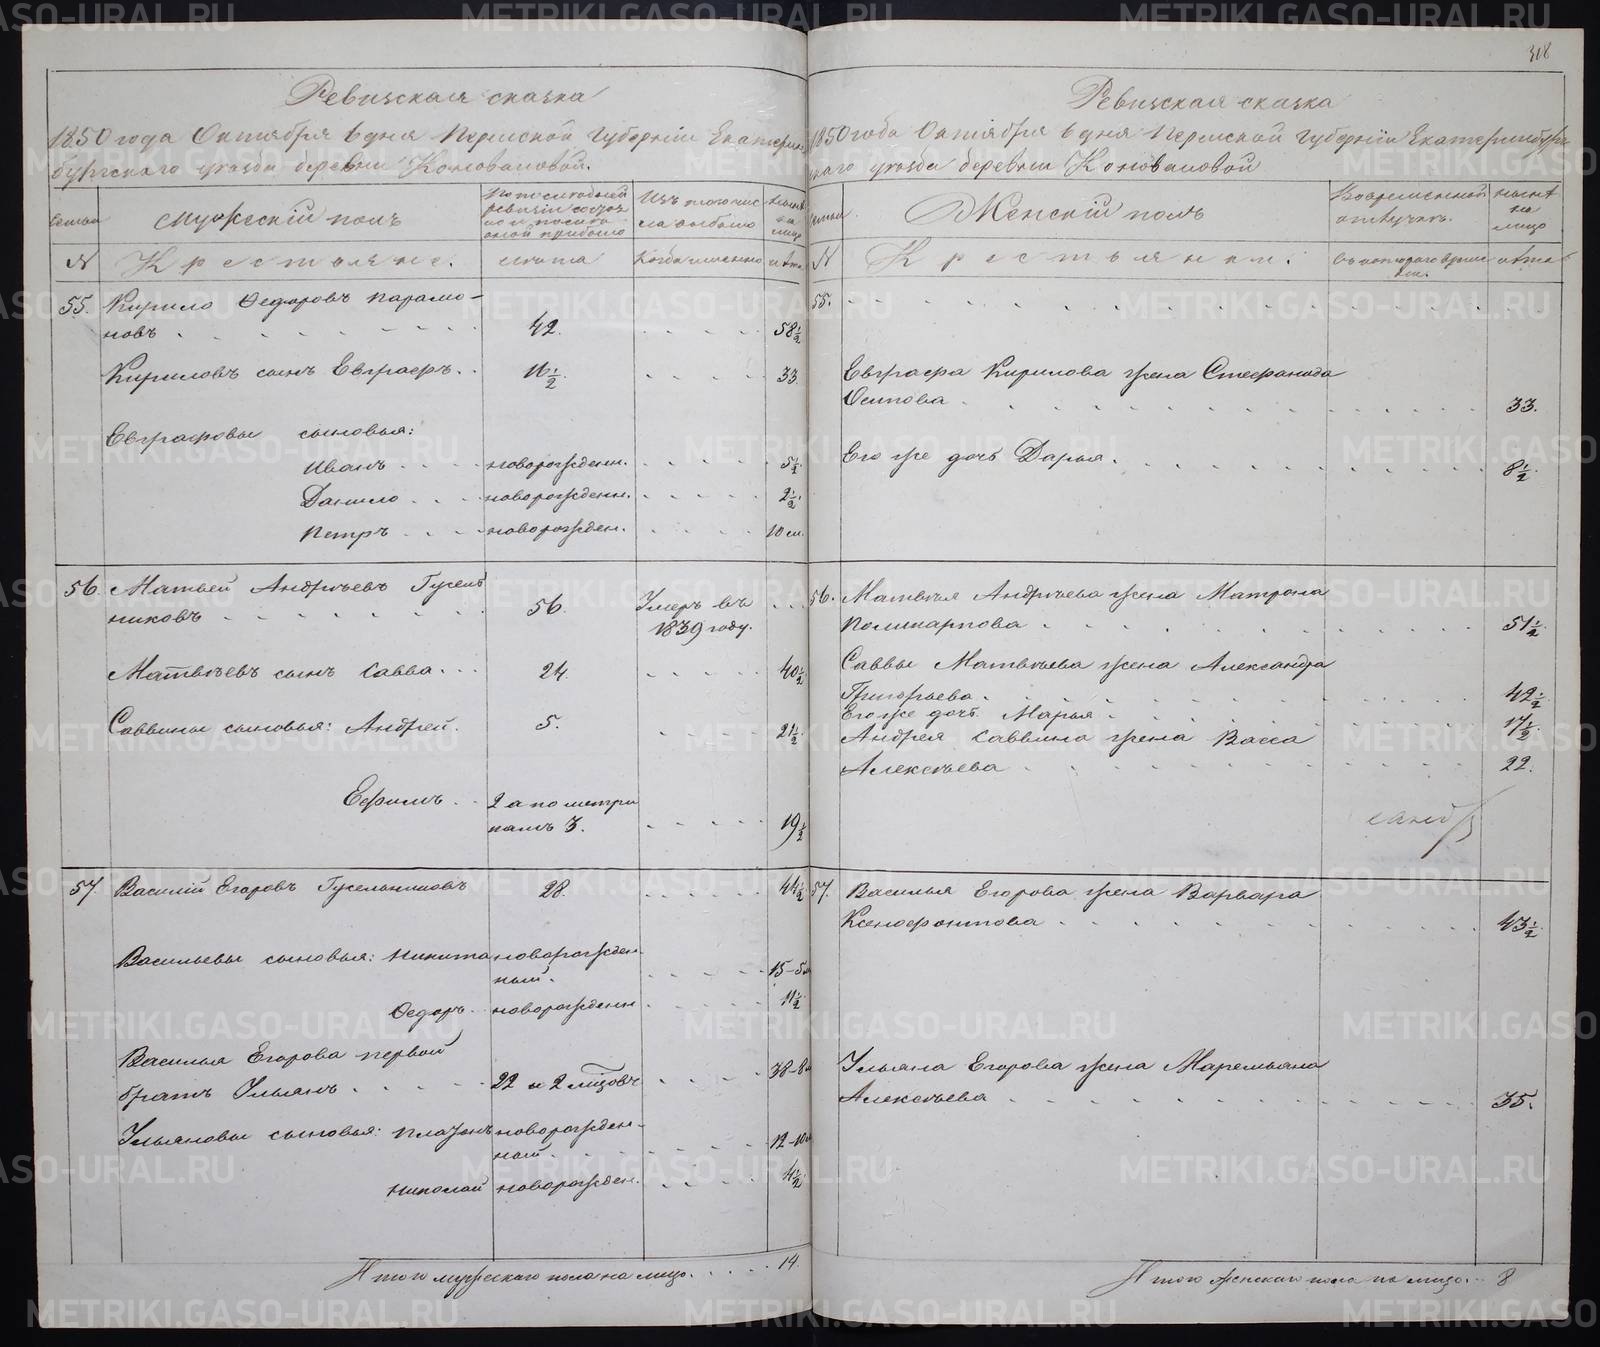 318
Ревизская сказка
1850 года Октября 6 дня Пермской Губернии Екатерин
бургскаго уезда деревни Коноваловой.
Семьи
Мужеский полъ
По последней ревизии состояло и после оной прибыло
Изъ того числа выбыло
Ныне на лице
N
Крестьяне.
лета
Когда именно
лета
55. Кирило Федоровъ Парамо-
новъ 42. 58½
Кириловъ сынъ Евграфъ. 16½. 33
Евграфовы сыновья:
Иванъ новорожденн. 5½
Данило новорожденн. 2½
Петръ новорожден. 10 м.
56. Матвей Андреевъ Гусель
никовъ 56. Умеръ въ
1839 году.
Матвеевъ сынъ Савва. 24. 40½
Саввины сыновья: Андрей. 5. 21½
Ефимъ 2 а по метри
камъ 3. 19½
57. Василий Егоровъ Гусельниковъ 28. 44½
Васильевы сыновья: Никита новорожден-
ный. 15-5м
Федоръ новорожденн 11½
Василья Егорова первой
братъ Ульянъ 22 и 2 мцовъ 38-8м
Ульяновы сыновья: Платонъ новорожден-
ный. 12-10м
Николай новорожден. 4½
Итого мужескаго пола на лицо. 14
Ревизская сказка
1850 года Октября 6 дня Пермской Губернии Екатеринбург
скаго уезда деревни Коноваловой
семьи
Женский полъ
Во временной отлучке.
ныне на лицо
N
Крестьянки.
Съ котораго времени.
лета
55.
Евграфа Кирилова жена Стефанида
Осипова 33.
Его же дочь Дарья. 8½
56. Матвея Андреева жена Матрона
Поликарпова 51½
Саввы Матвеева жена Александра
Григорьева. 42½
Его же дочь Марья 17½
Андрея Саввина жена Васса
Алексеева 22.
57. Василья Егорова жена Варвара
Ксенофонтова 43½
Ульяна Егорова жена Маремьяна
Алексеева 35.
Итого женскаго пола на лицо. 8
METRIKI.GASO-URAL.RU